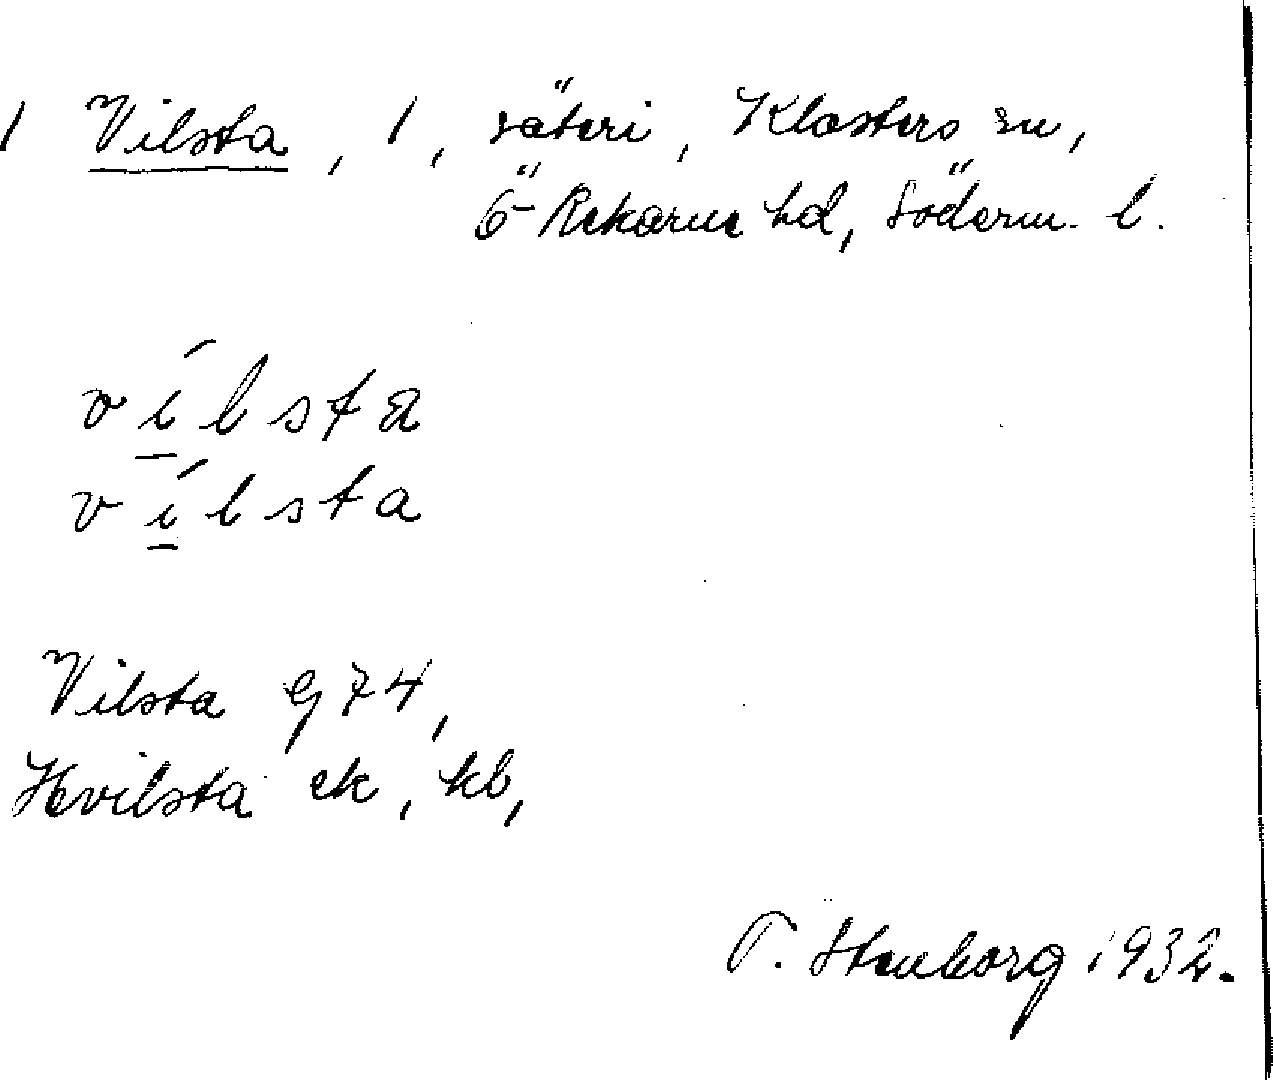 1 Vilsta, 1, säteri, Klosters sn,
Ö-Rekarne hd, Söderm. l.
vílsta
vílsta
Vilsta G 74,
Hvilsta ek, kb,
T. Stenborg 1932.